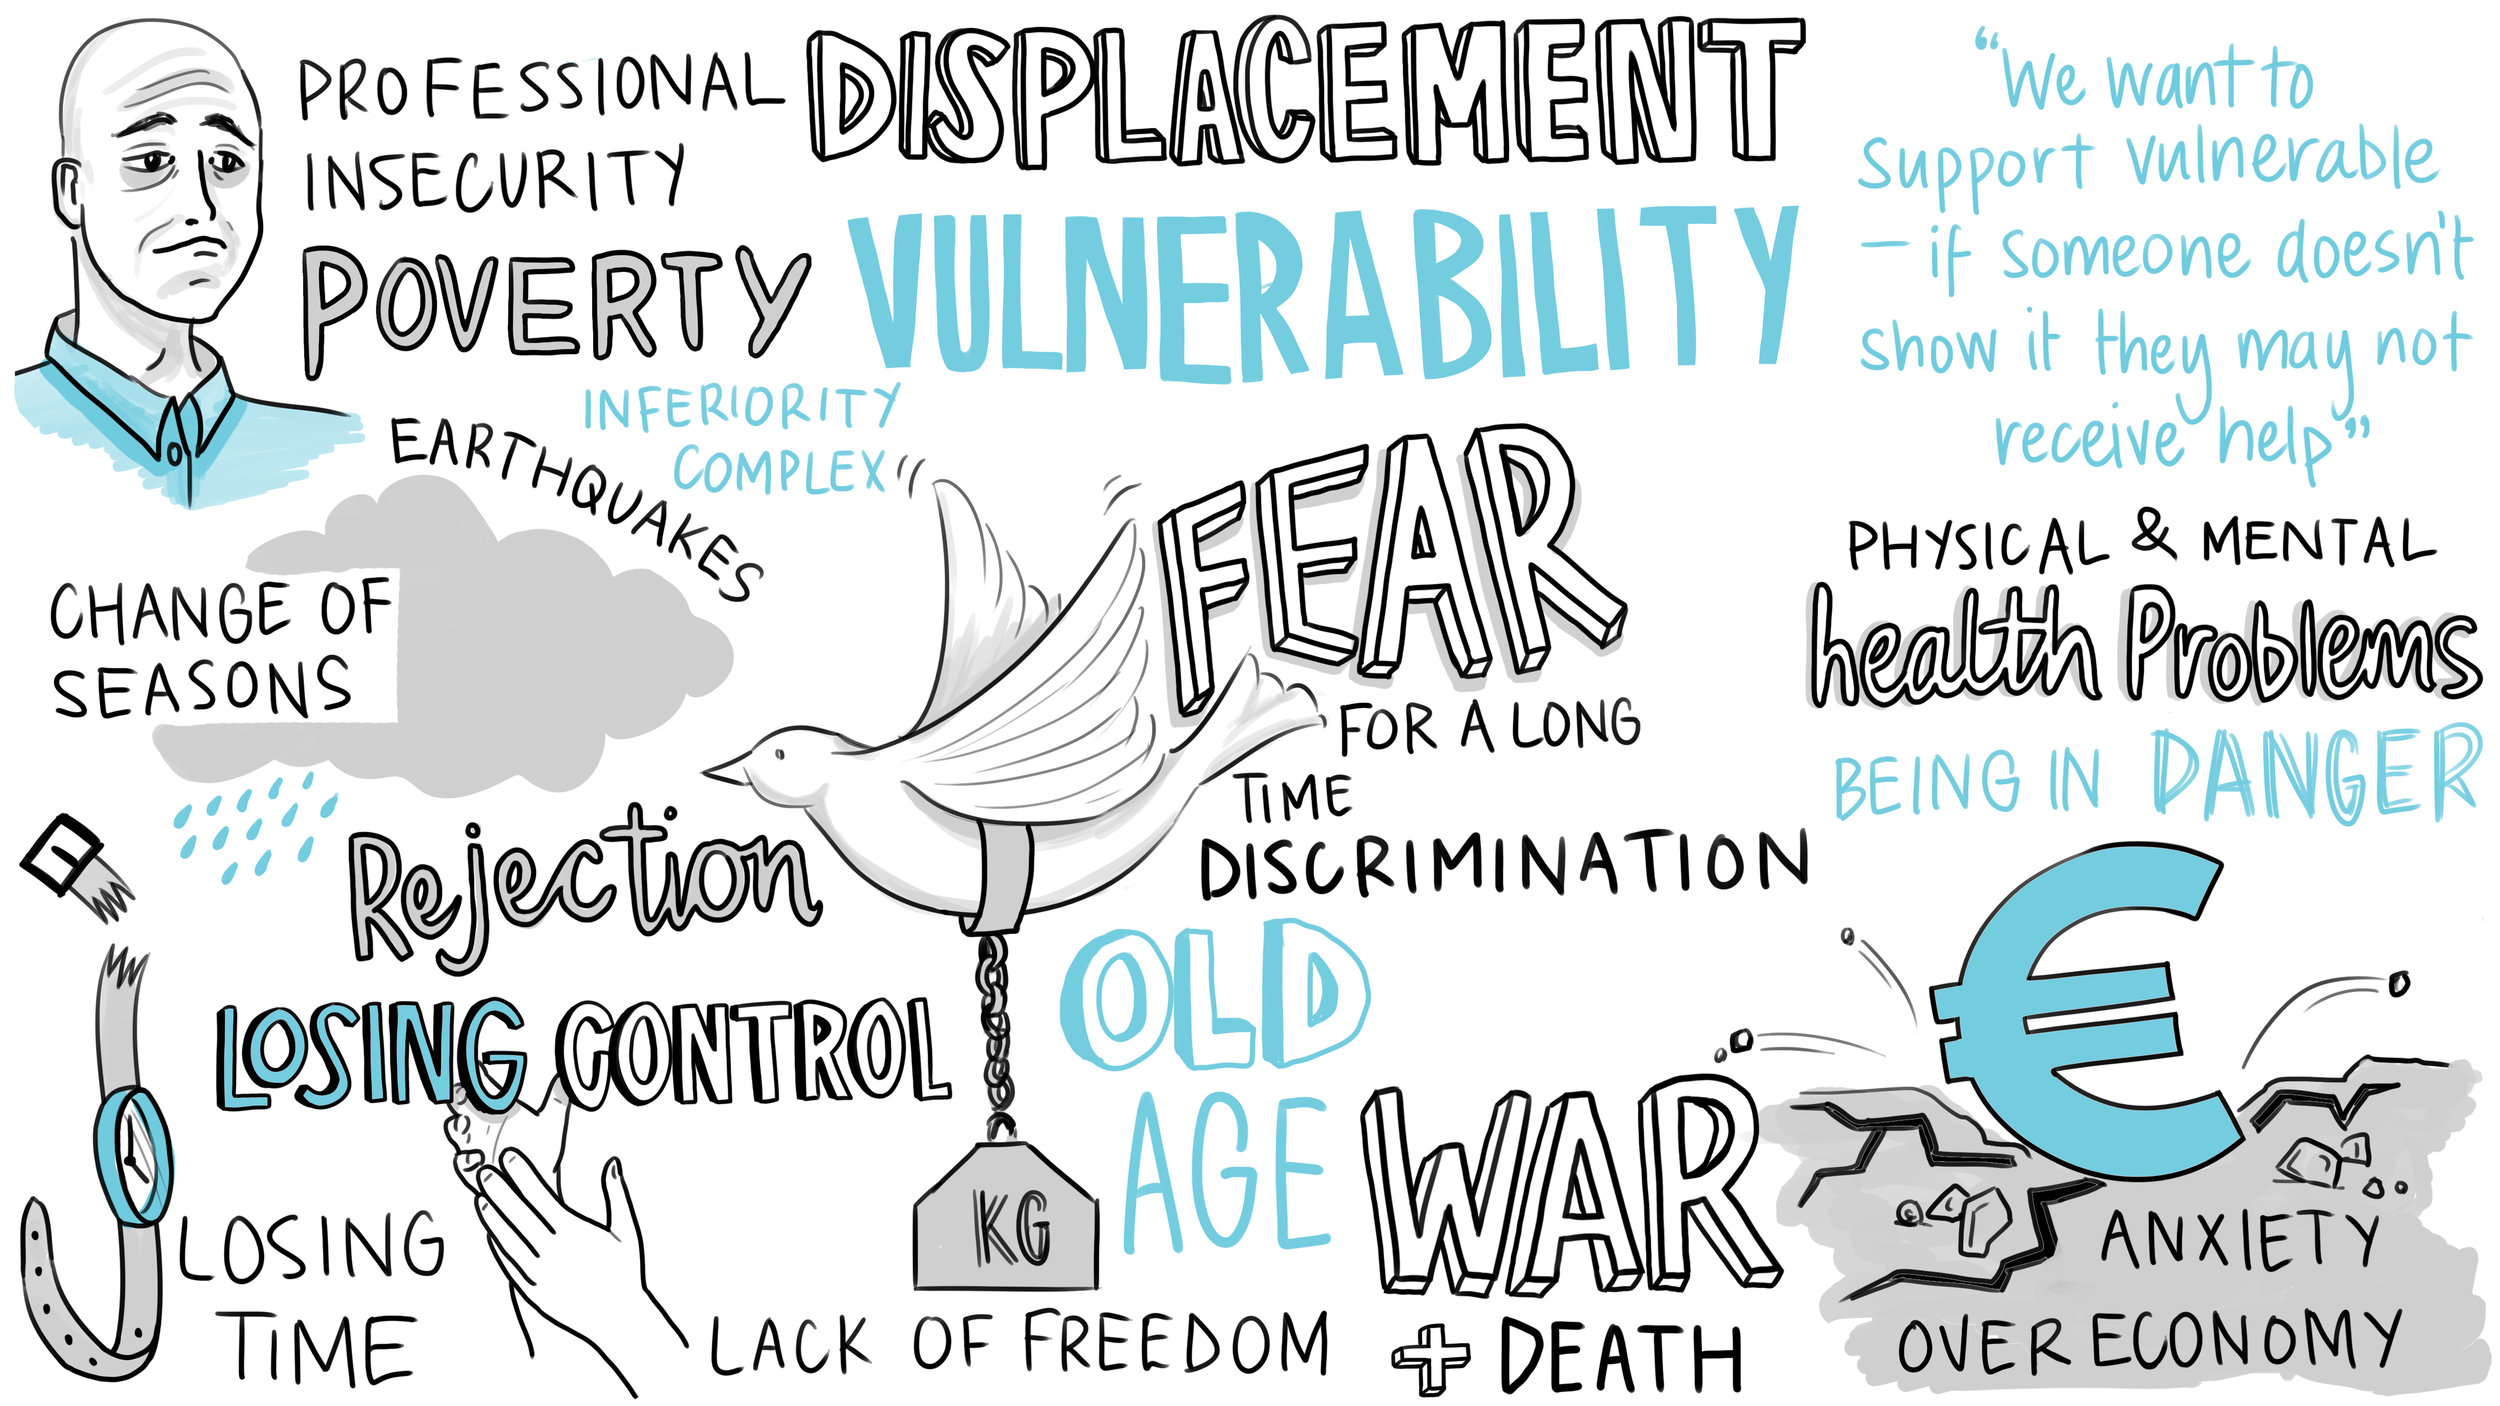 PROFESSIONAL
INSECURITY
POVERTY
DISPLACEMENT
VULNERABILITY
“We want to
support vulnerable
– if someone doesn't
show it they may not
receive help”
INFERIORITY
COMPLEX
EARTHQUAKES
CHANGE OF
SEASONS
FEAR
FOR A LONG
TIME
DISCRIMINATION
PHYSICAL & MENTAL
health Problems
BEING IN DANGER
Rejection
LOSING CONTROL
OLD
AGE
LOSING
TIME
KG
LACK OF FREEDOM
WAR
+ DEATH
€
ANXIETY
OVER ECONOMY